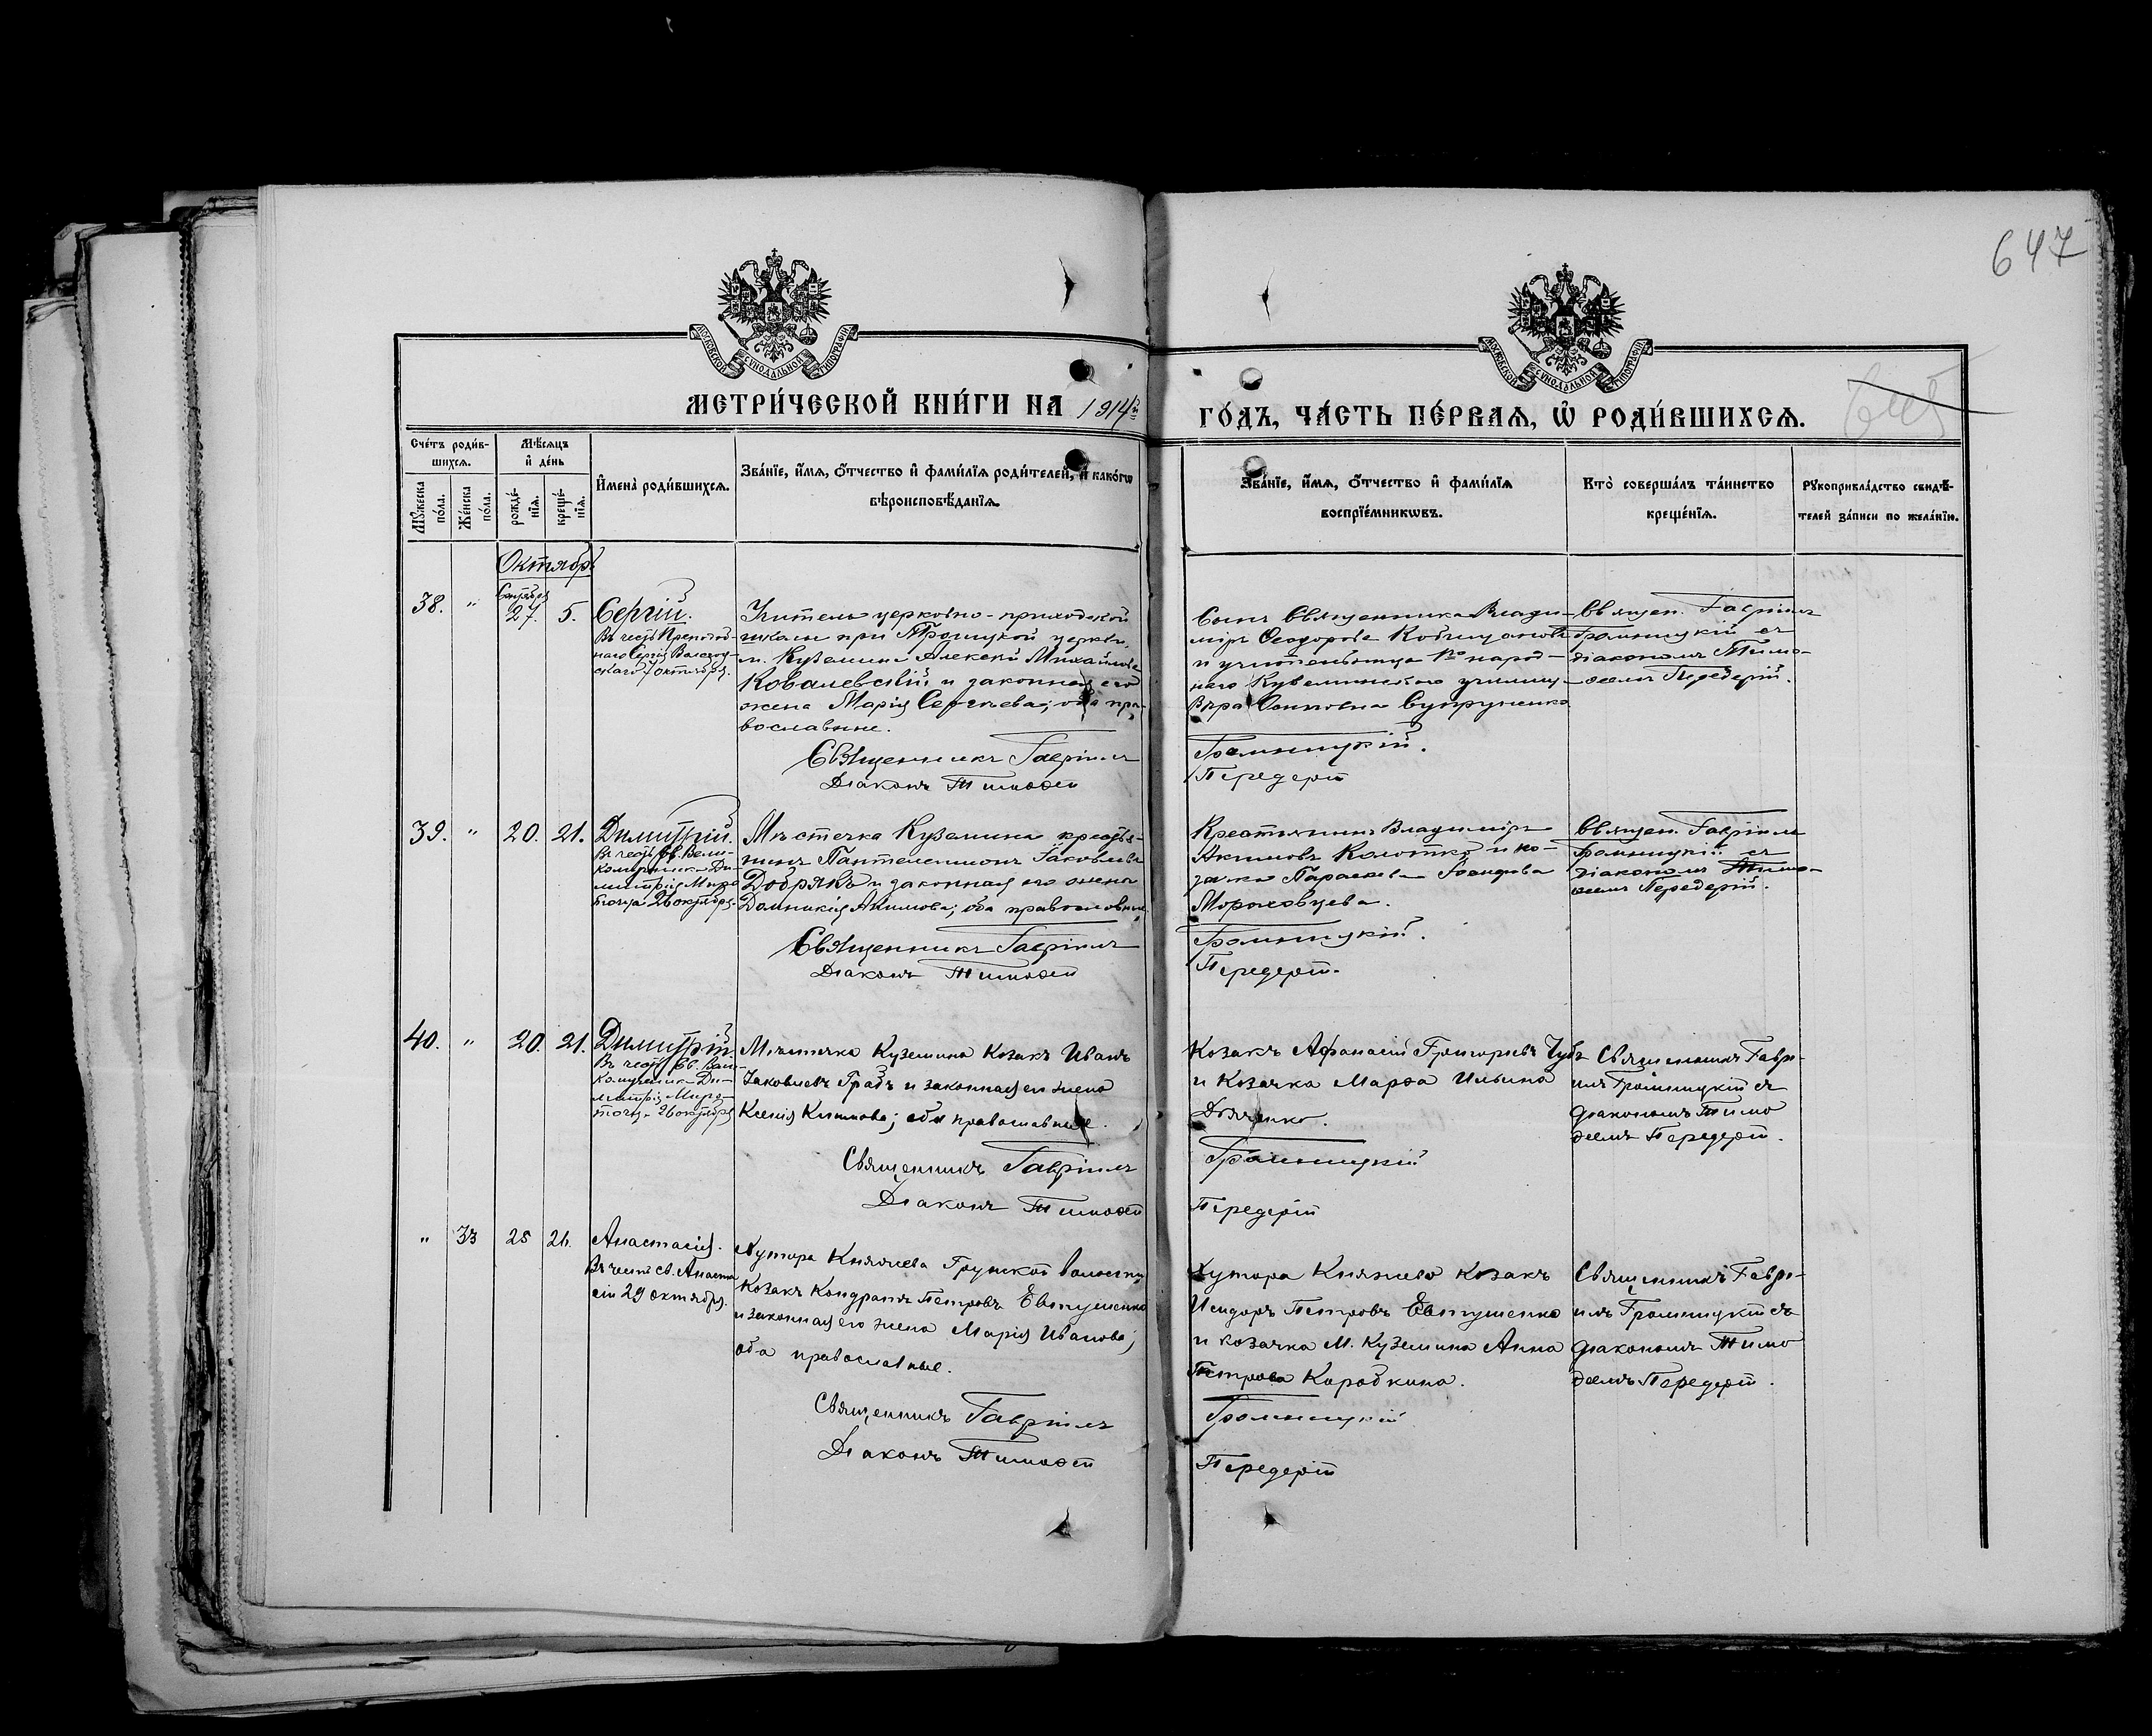 647
МОСКОВСКОЙ СУНОДАЛЬНОЙ ТИПОГРАФІИ
МОСКОВСКОЙ СУНОДАЛЬНОЙ ТИПОГРАФІИ
МЕТРИ́ЧЕСКОЙ КНИ́ГИ НА 1914й
ГО́ДЪ, ЧА́СТЬ ПЕ́РВАѦ, Ѡ РОДИ́ВШИХСѦ.
Сче́тъ роди́в-
шихсѧ.
Мꙋ́жеска по́ла.
Же́нска по́ла.
Мѣ́сѧцъ
и де́нь
рожде́-
нїѧ.
креще́-
нїѧ.
Имена̀ роди́вшихсѧ.
Зва́нїе, и́мѧ, ѻ́тчество и фами́лїѧ роди́телей, и како́гѡ
вѣроисповѣ́данїѧ.
Зва́нїе, и́мѧ, ѻ́тчество и фами́лїѧ
воспрїе́мникѡвъ.
Кто̀ соверша́лъ та́инство
креще́нїѧ.
Рꙋкоприкла́дство свидѣ́-
телей за́писи по жела́нїю.
Октябр.
38.
"
Сентября
27.
5.
Сергій.
Въ честь Преподоб-
наго Сергія
Учитель церковно-приходской
школы при Троицкой церкви,
м. Куземина Алексѣй Михайловъ
Ковалевскій и законная его
жена Марія Сергѣева; оба пра-
вославные.
Священникъ Гавріилъ
Діаконъ Тимофей
Сынъ Священника Влади-
міръ Ѳеодоровъ
и учительница 1го народ-
наго Куземинского училищ-
Вѣра Супруненко
Громницкій.
Передерій
Священ. Гавріилъ
Громницкій съ
діакономъ Тимо-
ѳеемъ Передерій.
39.
"
20.
21.
Димитрій.
Въ честь Св. Вели-
комученика Ди-
митрія Миро-
точца 26 октября.
Мѣстечка Куземина крестья-
нинъ Пантелеимонъ Іаковлевъ
Добрякъ и законная его жена
Домникія Акимова; оба православные.
Священникъ Гавріилъ
Діаконъ Тимоѳей
Крестьянинъ Владиміръ
Акимовъ Колотко и ко-
зачка Параскева
Мороховцева.
Громницкій.
Передерій.
Священ. Гавріилъ
Громницкій съ
діакономъ Тимо-
ѳеемъ Передерій.
40.
"
20.
21.
Димитрій.
Въ честь Св. Вели-
комученика Ди-
митрія Миро-
точц. 26 октября
Мѣстечка Куземина Козакъ Иванъ
Іаковлевъ Грабъ и законная его жена
Ксенія Климова; оба православные.
Священникъ Гавріилъ
Діаконъ Тимоѳей
Козакъ Афанасій Григорьевъ Чубъ
и Козачка Марѳа Ильина
Дяченко.
Громницкій
Передерій
Священникъ Гаврі-
илъ Громницкій съ
діакономъ Тимо
ѳеемъ Передерій.
"
33
25
26.
Анастасія.
Въ честь св. Анаста
сіи 29 октября.
Хутора Княжева Грунской волости
Козакъ Кондратъ Петровъ Евтушенко
и законная его жена Марія Иванова;
оба православные.
Священникъ Гавріилъ
Діаконъ Тимоѳей
Хутора Княжева Козакъ
Исидоръ Петровъ Евтушенко
и козачка М. Куземина Анна
Петрова Коробкина.
Громницкій
Передерій
Священникъ Гаврі-
илъ Громницкій съ
діакономъ Тимо
ѳеемъ Передерій.